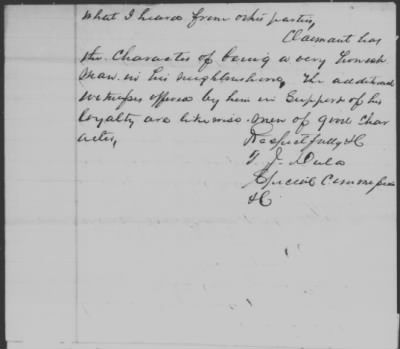 what I heard from other parties,
Claimant has
the Character of being a very honest
Man in his neighborhood, The additional
witnesses offered by him in Support of his
loyalty are likewise men of good Char
acter,
Respectfully &c
T. J. Dula
Special Commr
&c